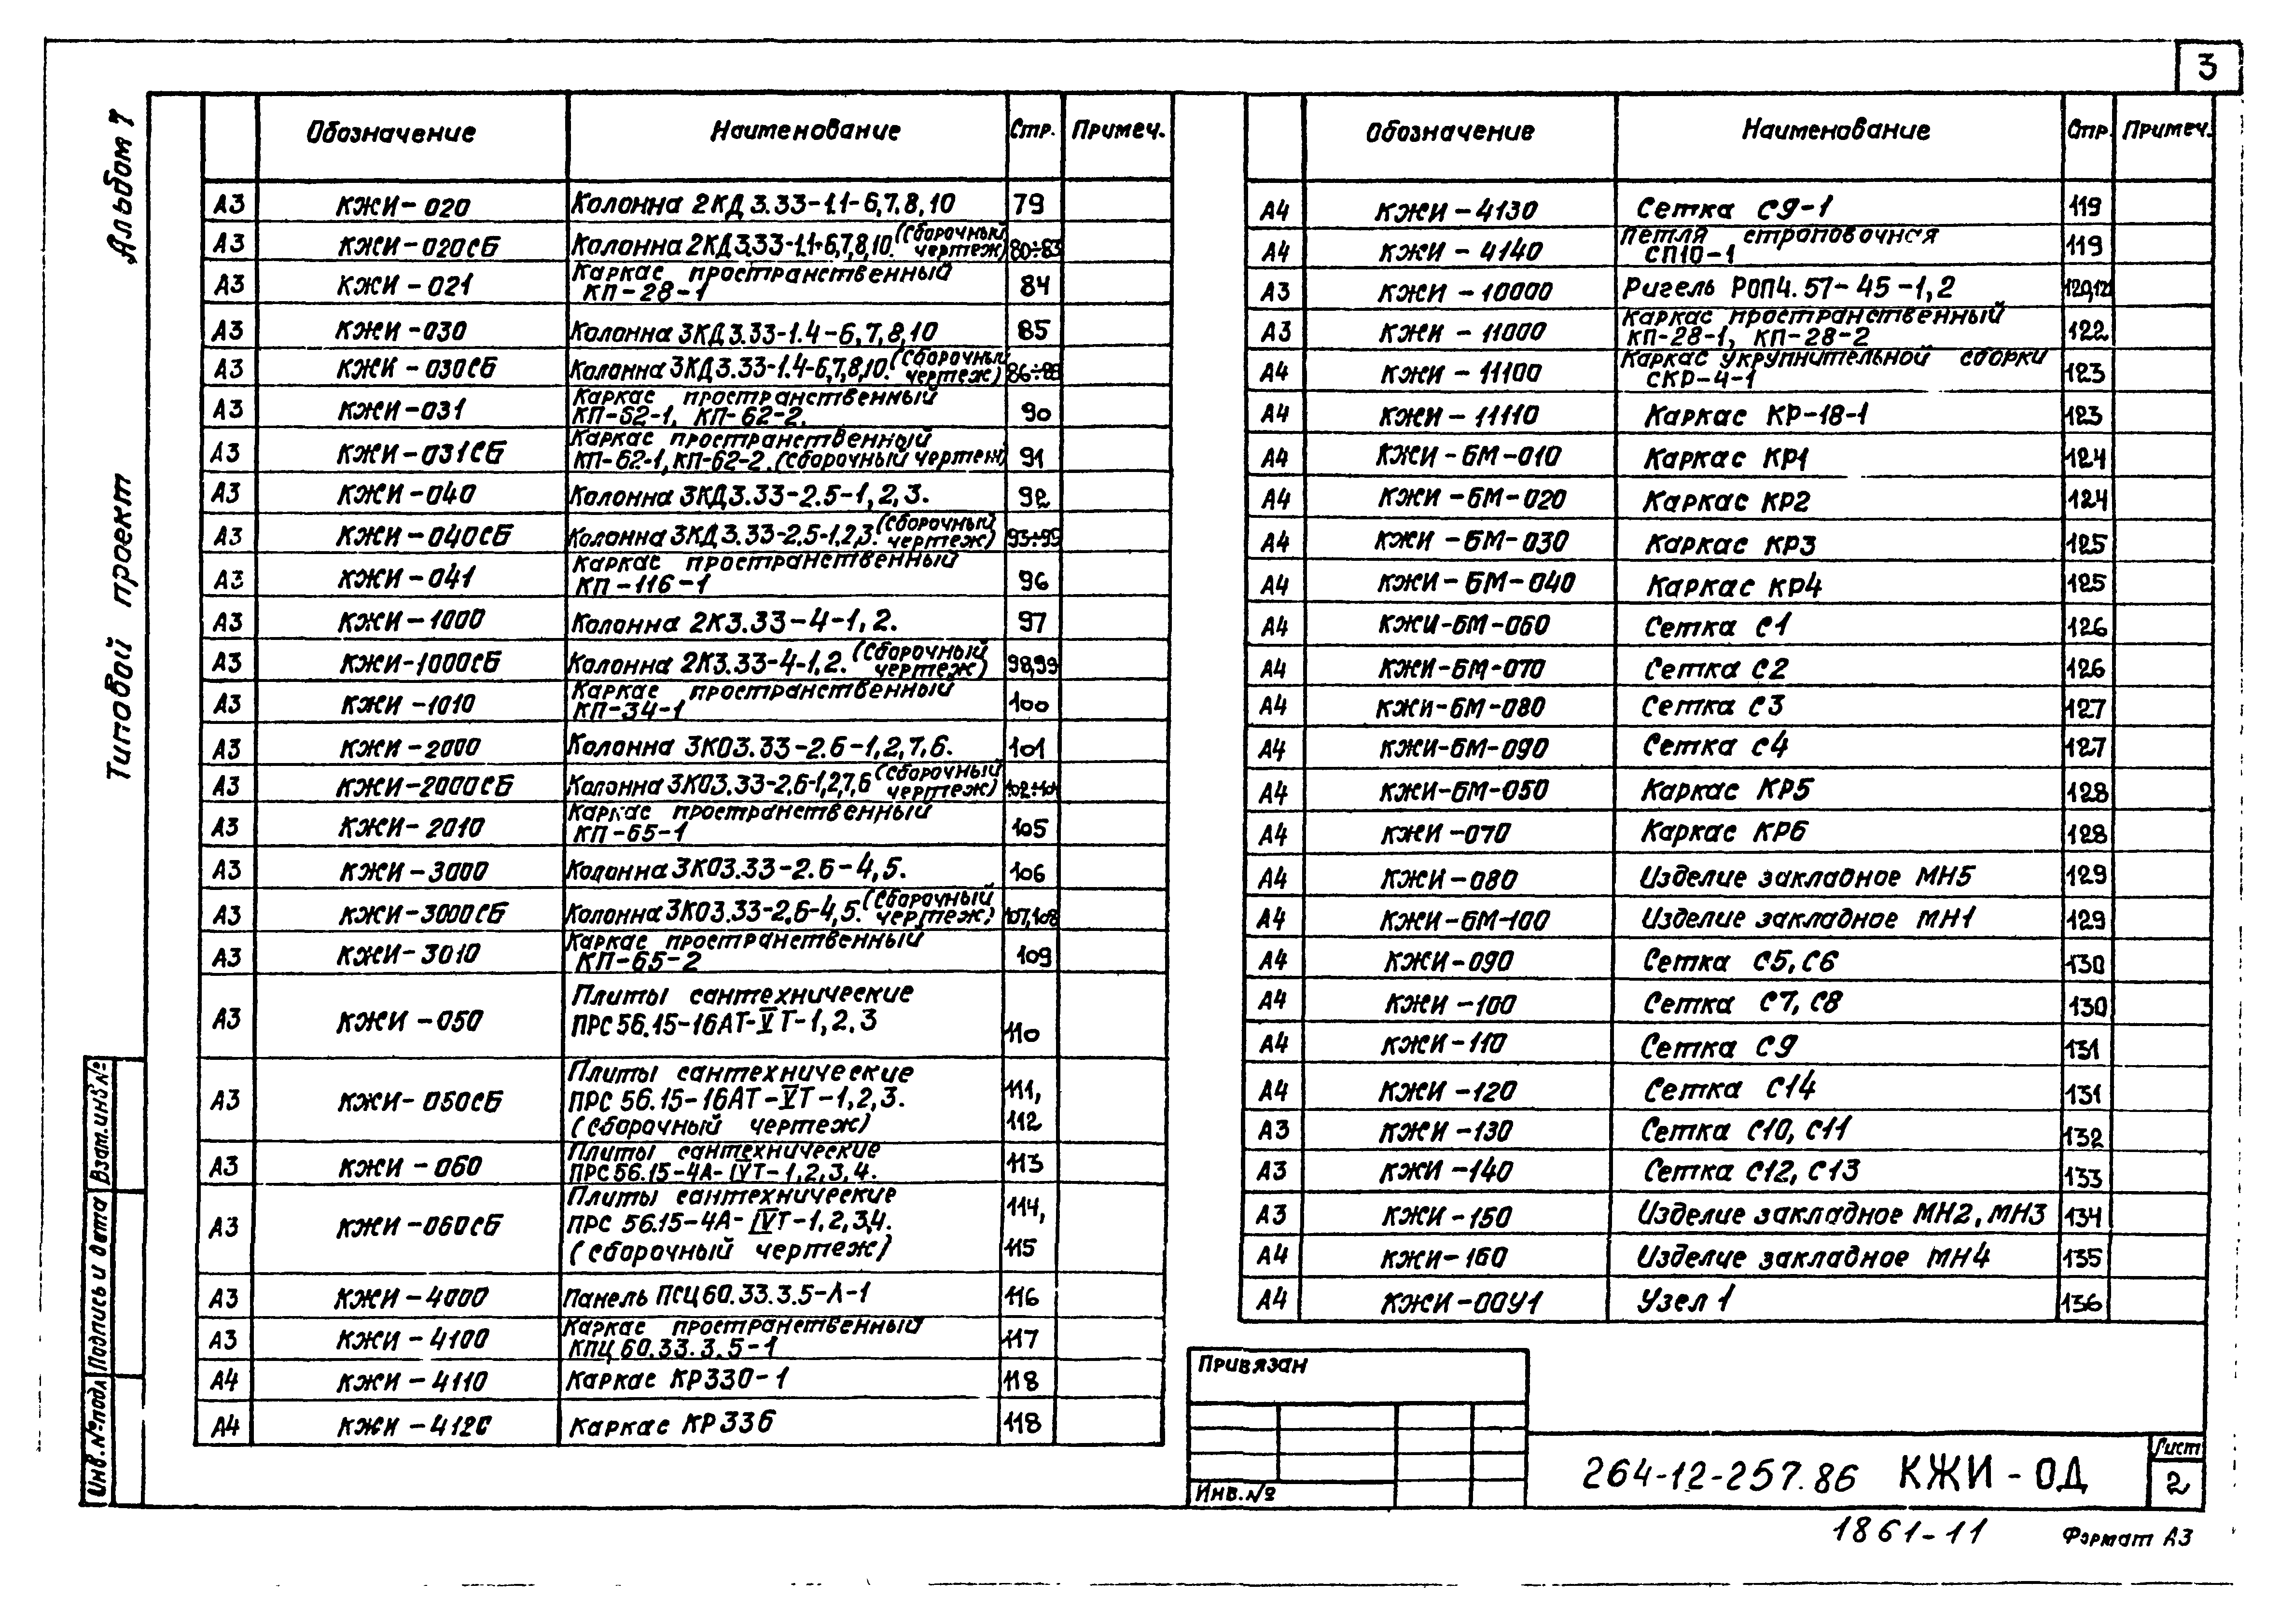 3
Альбом 7
Типовой проект
Обозначение Наименование Стр. Примеч.
А3 КЖИ-020 Колонна 2КД3.33-1.1-6,7,8,10 79
А3 КЖИ-020СБ Колонна 2КД3.33-1.1-6,7,8,10. (Сборочный чертеж) 80÷83
А3 КЖИ-021 Каркас пространственный
КП-28-1 84
А3 КЖИ-030 Колонна 3КД3.33-1.4-6,7,8,10 85
А3 КЖИ-030СБ Колонна 3КД3.33-1.4-6,7,8,10. (Сборочный чертеж)
А3 КЖИ-031 Каркас пространственный
КП-62-1, КП-62-2. 90
А3 КЖИ-031СБ Каркас пространственный
КП-62-1, КП-62-2. (Сборочный чертеж) 91
А3 КЖИ-040 Колонна 3КД3.33-2.5-1,2,3. 92
А3 КЖИ-040СБ Колонна 3КД3.33-2.5-1,2,3. (Сборочный чертеж)
А3 КЖИ-041 Каркас пространственный
КП-116-1 96
А3 КЖИ-1000 Колонна 2К3.33-4-1,2. 97
А3 КЖИ-1000СБ Колонна 2К3.33-4-1,2. (Сборочный чертеж) 98,99
А3 КЖИ-1010 Каркас пространственный
КП-34-1 100
А3 КЖИ-2000 Колонна 3К03.33-2.6-1,2,7,6. 101
А3 КЖИ-2000СБ Колонна 3К03.33-2.6-1,2,7,6 (Сборочный чертеж) 102÷104
А3 КЖИ-2010 Каркас пространственный
КП-65-1 105
А3 КЖИ-3000 Колонна 3К03.33-2.6-4,5. 106
А3 КЖИ-3000СБ Колонна 3К03.33-2.6-4,5. (Сборочный чертеж) 107,108
А3 КЖИ-3010 Каркас пространственный
КП-65-2 109
А3 КЖИ-050 Плиты сантехнические
ПРС56.15-16АТ-V Т-1,2,3 110
А3 КЖИ-050СБ Плиты сантехнические
ПРС 56.15-16АТ-VТ-1,2,3.
(Сборочный чертеж) 111, 112
А3 КЖИ-060 Плиты сантехнические
ПРС56.15-4А-IVТ-1,2,3,4. 113
А3 КЖИ-060СБ Плиты сантехнические
ПРС 56.15-4А-IVТ-1,2,3,4.
(сборочный чертеж) 114, 115
А3 КЖИ-4000 Панель ПСЦ60.33.3.5-Л-1 116
А3 КЖИ-4100 Каркас пространственный
КПЦ60.33.3.5-1 117
А4 КЖИ-4110 Каркас КР330-1 118
А4 КЖИ-4120 Каркас КР336 118
Обозначение Наименование Стр. Примеч.
А4 КЖИ-4130 Сетка С9-1 119
А4 КЖИ-4140 Петля строповочная
СП10-1 119
А3 КЖИ-10000 Ригель РОП4.57-45-1,2 120,121
А3 КЖИ-11000 Каркас пространственный
КП-28-1, КП-28-2 122
А4 КЖИ-11100 Каркас укрупнительной сборки
СКР-4-1 123
А4 КЖИ-11110 Каркас КР-18-1 123
А4 КЖИ-БМ-010 Каркас КР1 124
А4 КЖИ-БМ-020 Каркас КР2 124
А4 КЖИ-БМ-030 Каркас КР3 125
А4 КЖИ-БМ-040 Каркас КР4 125
А4 КЖИ-БМ-060 Сетка С1 126
А4 КЖИ-БМ-070 Сетка С2 126
А4 КЖИ-БМ-080 Сетка С3 127
А4 КЖИ-БМ-090 Сетка С4 127
А4 КЖИ-БМ-050 Каркас КР5 128
А4 КЖИ-070 Каркас КР6 128
А4 КЖИ-080 Изделие закладное МН5 129
А4 КЖИ-БМ-100 Изделие закладное МН1 129
А4 КЖИ-090 Сетка С5, С6 130
А4 КЖИ-100 Сетка С7, С8 130
А4 КЖИ-110 Сетка С9 131
А4 КЖИ-120 Сетка С14 131
А3 КЖИ-130 Сетка С10, С11 132
А3 КЖИ-140 Сетка С12, С13 133
А3 КЖИ-150 Изделие закладное МН2, МН3 134
А4 КЖИ-160 Изделие закладное МН4 135
А4 КЖИ-00У1 Узел 1 136
Взам.инв.№
Подпись и дата
Инв.№подл
Привязан
Инв.№
264-12-257.86 КЖИ-ОД
Лист
2
1861-11
Формат А3